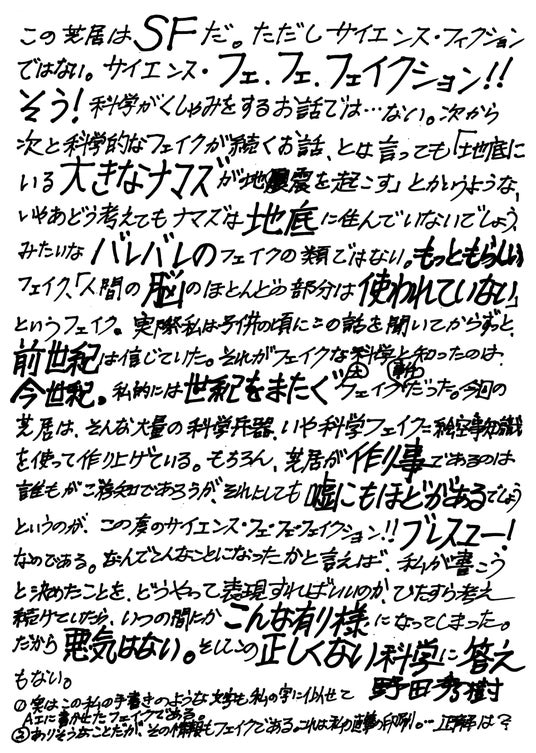 この芝居はSFだ。ただしサイエンス・フィクション
ではない。サイエンス・フェ、フェ、フェイクション!!
そう!科学がくしゃみをするお話では…ない。次から
次と科学的なフェイクが続くお話、とは言っても「地底に
いる大きなナマズが地震を起こす」とかいうような、
いやあどう考えてもナマズは地底に住んでいないでしょう、
みたいなバレバレのフェイクの類ではない。もっともらしい
フェイク、「人間の脳のほとんどの部分は使われていない」
というフェイク。実際私は子供の頃にこの話を聞いてからずっと、
前世紀は信じていた。それがフェイクな科学と知ったのは、
今世紀。私的には世紀をまたぐフェイクだった。今回の
芝居は、そんな大量の科学兵器、いや科学フェイク=絵空事知識
を使って作り上げている。もちろん、芝居が作り事であるのは
誰もがご承知であろうが、それにしても嘘にもほどがあるでしょう
というのが、この度のサイエンス・フェ・フェ・フェイクション!!ブレスユー!
なのである。なんでこんなことになったかと言えば、私が書こう
と決めたことを、どうやって表現すればいいのか、ひたすら考え
続けていたら、いつの間にかこんな有り様になってしまった。
だから悪気はない。そしてこの正しくない科学に答え
もない。
野田秀樹
①実はこの私の手書きのような文字も私の字に似せて
AIに書かせたフェイクである。
②ありそうなことだが、その情報もフェイクである。これは私の直筆の印刷。…正解は?